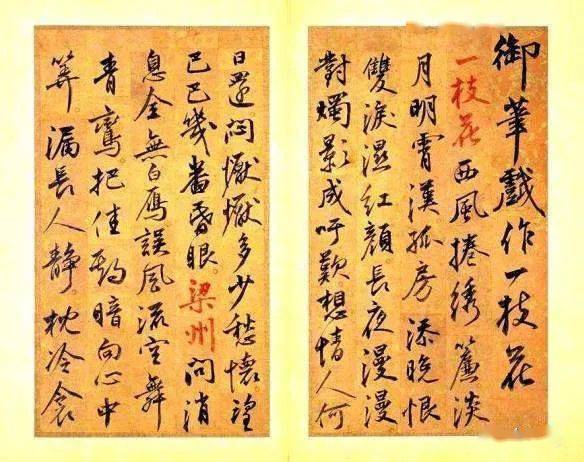 御筆戲作一枝花
一枝花西風捲綉簾淡
月明霄漢孤房添晚恨
雙淚濕紅顏長夜漫漫
對燭影成吁歎想情人何
日還悶懨懨多少愁懷望
巴巴幾畨昏眼。梁州問消
息全無白鴈誤風流空舞
青鸞把佳期暗向心中
筭漏長人靜。枕冷衾